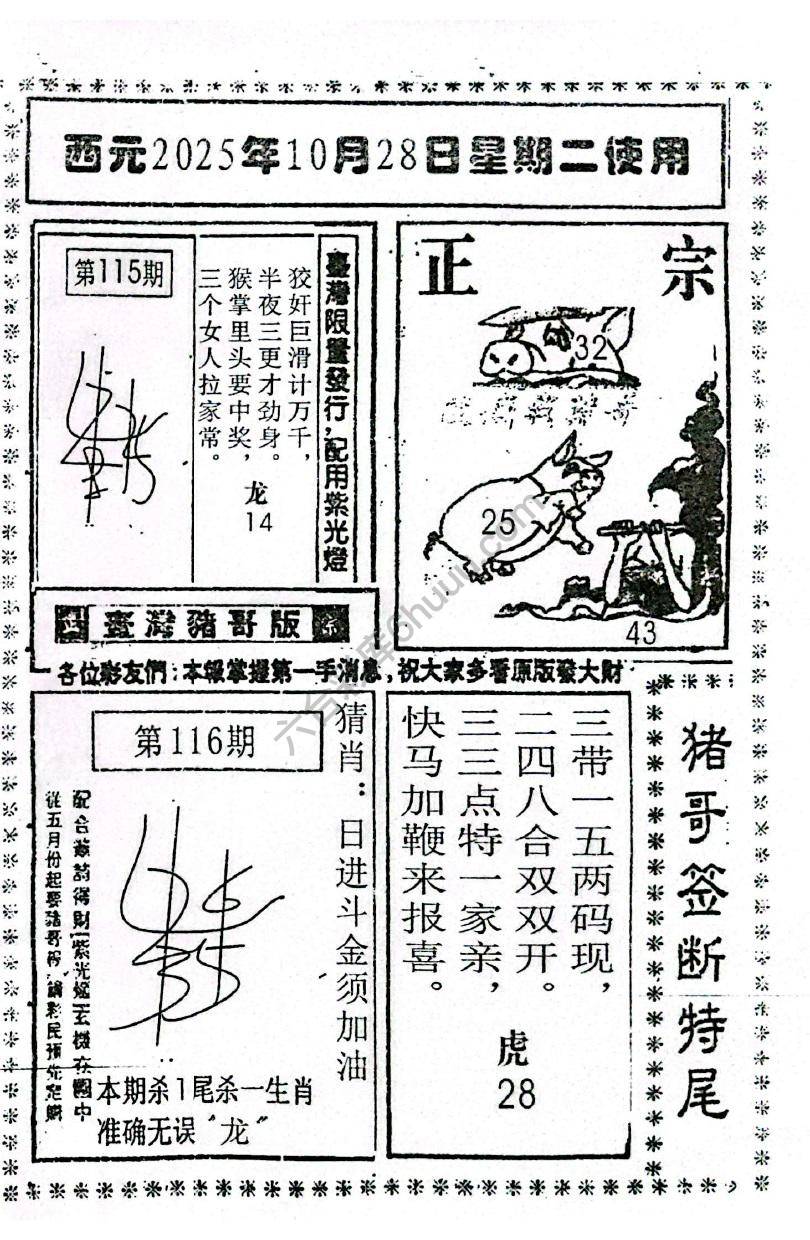 西元2025年10月28日星期二使用
第115期
狡奸巨滑计万千，
半夜三更才劲身。
猴掌里头要中奖，
三个女人拉家常。
龙
14
臺灣限量發行，配用紫光燈
正宗
32
25
43
臺灣豬哥版
各位彩友們：本報掌握第一手消息，祝大家多看原版發大財
第116期
猜肖：日进斗金须加油
本期杀1尾杀一生肖
准确无误“龙”
三带一五两码现，
二四八合双双开。
三三点特一家亲，
快马加鞭来报喜。
虎
28
猪哥签断特尾